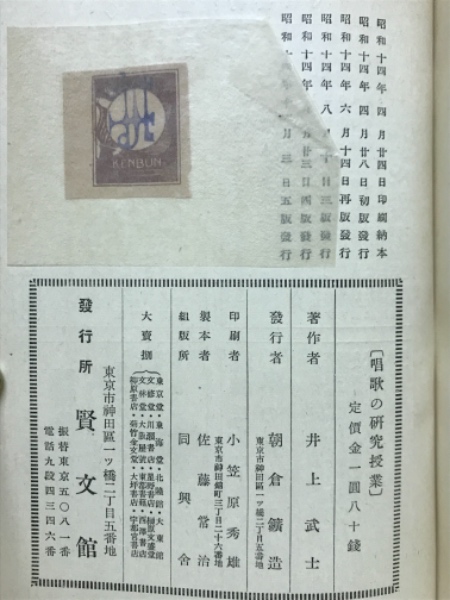 昭和十四年四月廿四日印刷納本
昭和十四年四月廿八日初版發行
昭和十四年六月十四日再版發行
昭和十四年八月十日三版發行
月廿三日四版發行
月三日五版發行
KENBUN
〔唱歌の研究授業〕
定價金一圓八十錢
著作者 井上武士
發行者 朝倉鑛造
東京市神田區一ッ橋二丁目五番地
印刷者 小笠原秀雄
東京市神田錦町三丁目二十六番地
製本者 佐藤常治
組版所 同興舍
大賣捌
東京堂・東海堂・北隆館・大東館
柳原書店・菊竹金文堂・大坪書店・宇都宮書店
發行所 賢文館
東京市神田區一ッ橋二丁目五番地
振替東京五〇八一番
電話九段四三四六番